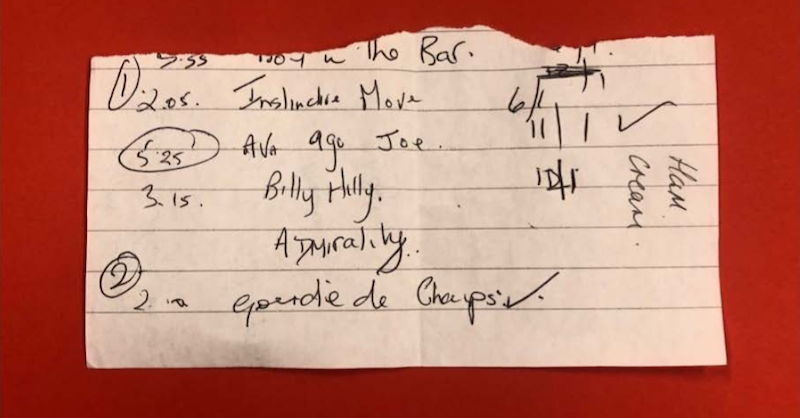 the Bar.
① 2.05. Instinctive Move 6/1
5.25 AVA ago Joe. 11/1 ✓
3.15. Billy Hilly.
ADMirality..
②
2. de Champs. ✓.
Ham
cream.